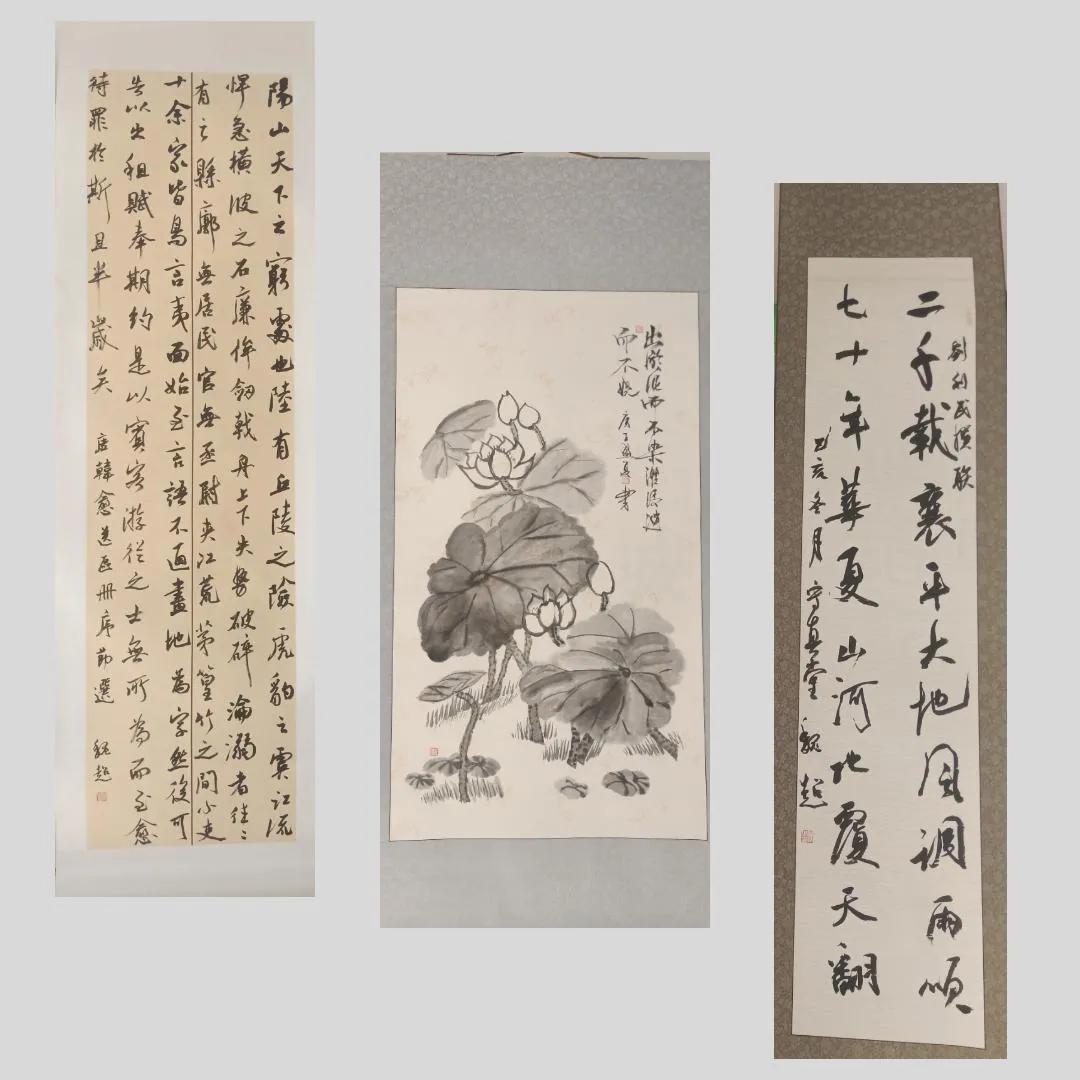 陽山天下之窮處也陸有丘陵之險虎豹之虞江流
悍急橫波之石廉侔劒戟舟上下失勢破碎淪溺者往〻
有之縣廓無居民官無丞尉夾江荒茅篁竹之間小吏
十余家皆鳥言夷面始至言語不通畫地為字然後可
告以出租賦奉期約是以賓客游從之士無所為而至愈
待罪於斯且半歲矣 唐韓愈送區冊序節選 魏超
出淤泥而不染濯清漣
而不妖 庚子 書
劉利民撰联
二千載襄平大地风調雨順
七十年華夏山河地覆天翻
己亥冬月 守真堂 魏超